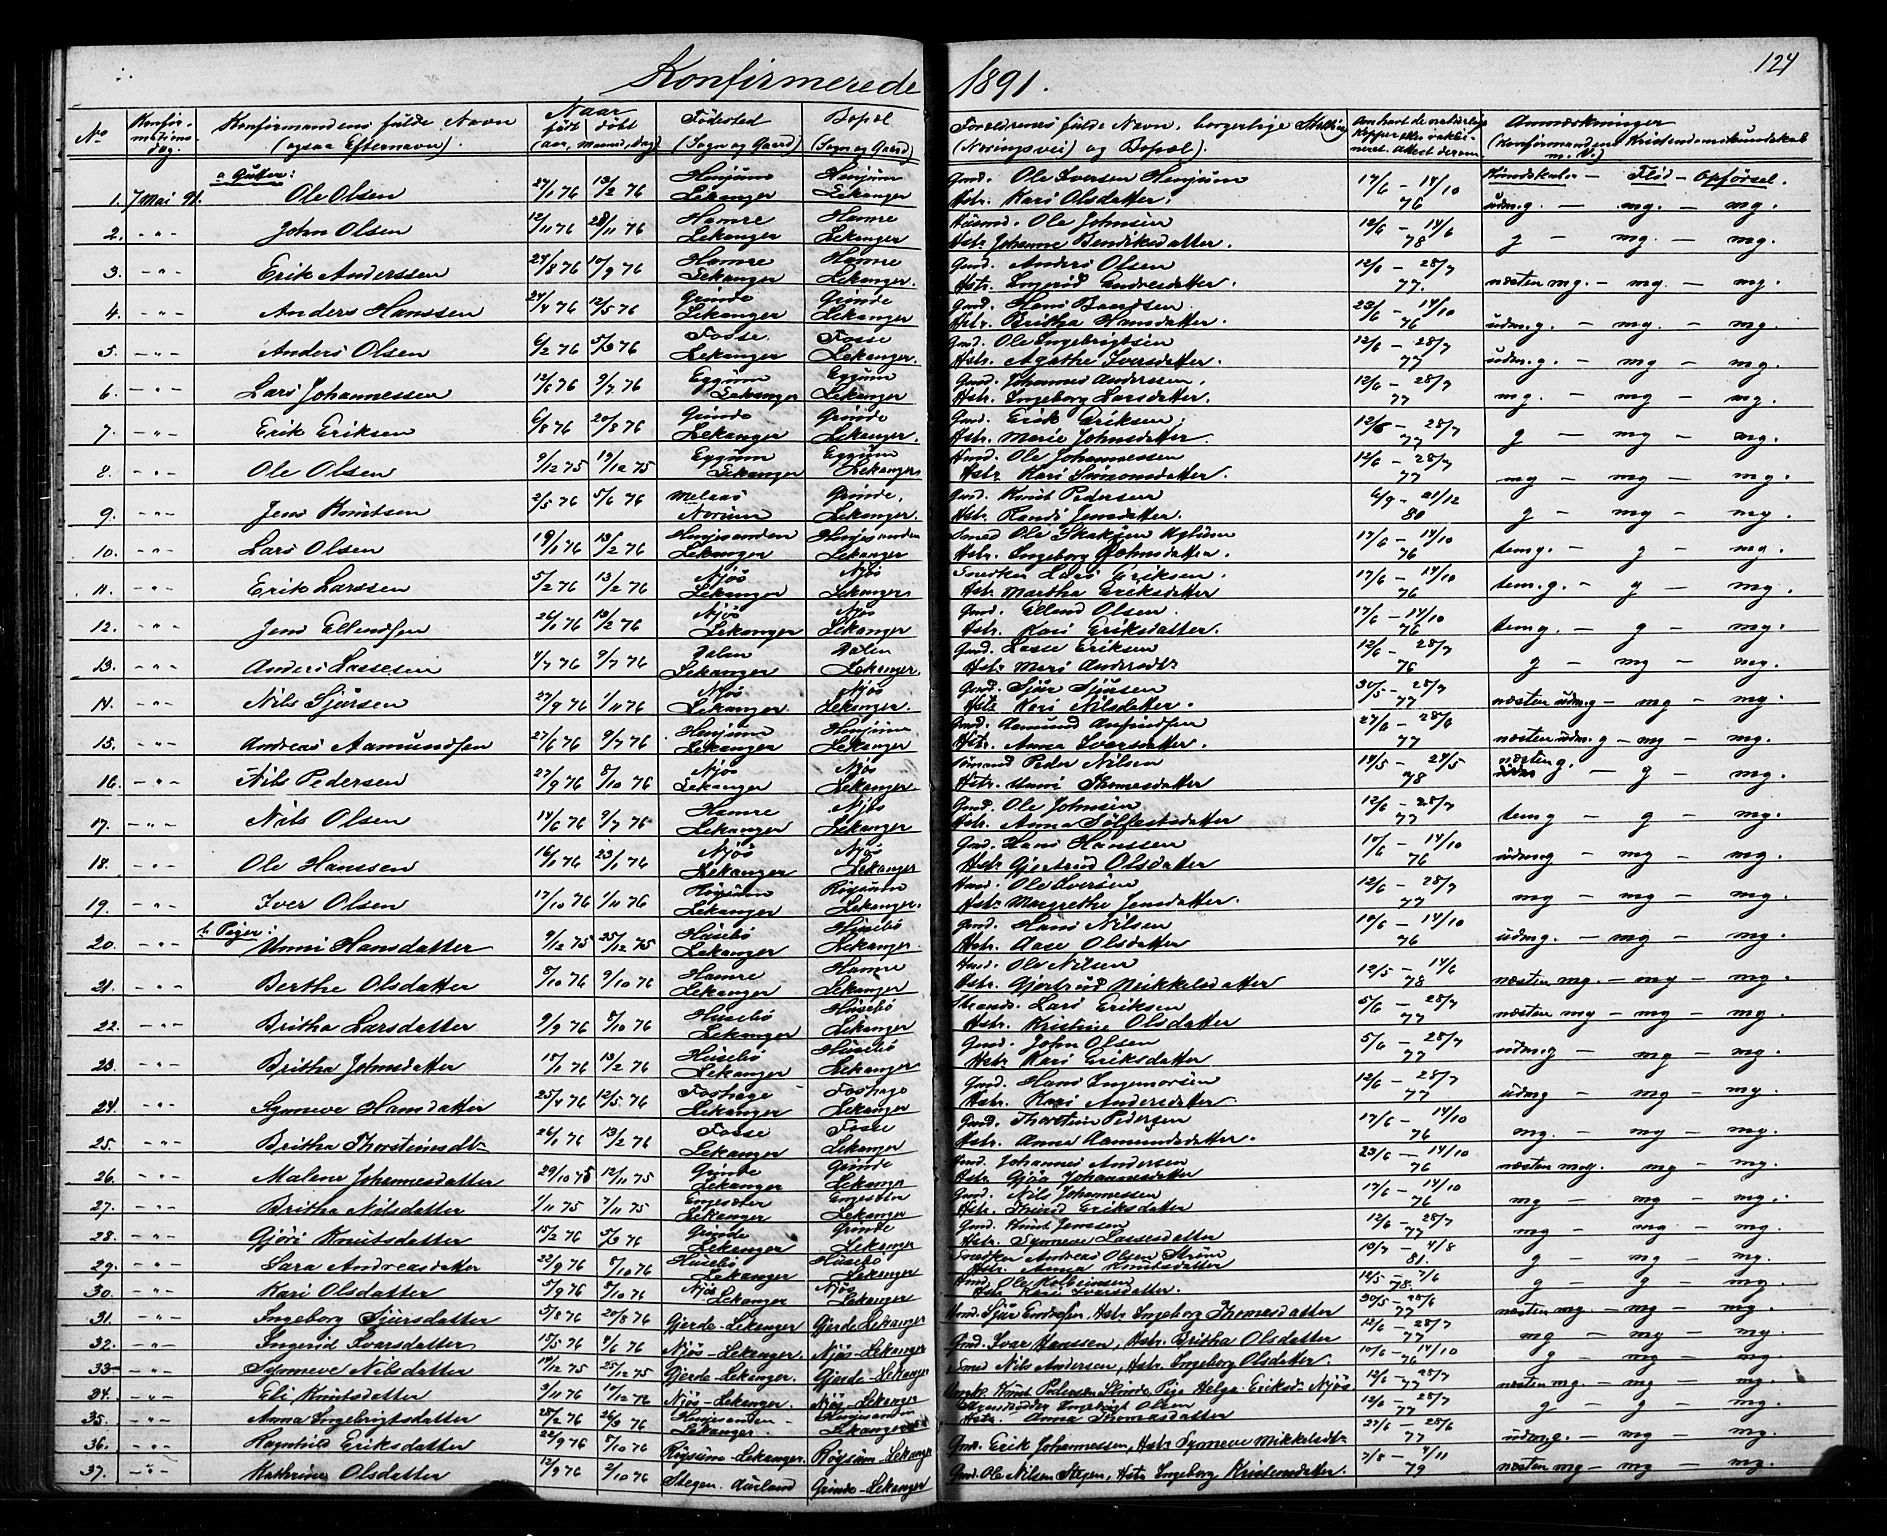 Konfirmerede 1891. 124
No Konfirmations dag. Konfirmandens fulde Navn (ogsaa Efternavn). Naar født døbt (aar, maaned, dag) Fødested (Sogn og Gaard) Bopæl (Sogn og Gaard) Forældrenes fulde Navn, borgerlige Stilling (Næringsvei) og Bopæl). Om havt de naturlige Kopper eller vaksineret. Attest derom Anmærkninger (Konfirmandens Kristendomskundskab m. V.)
a Gutter: Kundskaber - Flid - Opførsel.
1. 7 Mai 91. Ole Olsen 27/1 76 13/2 76 Henjum Lekanger Henjum Lekanger Gmd. Ole Iversen Henjum Hstr. Kari Olsdatter. 17/6 - 14/10 76 udm.g. - mg. - mg.
2. -"- John Olsen 12/11 76 28/11 76 Hamre Lekanger Hamre Lekanger Husmd. Ole Johnsen Hstr Johanne Bendiksdatter. 12/6 - 14/6 78 g - mg. - mg.
3. -"- Erik Anderssen 24/8 76 10/9 76 Hamre Lekanger Hamre Lekanger. Gmd. Anders Olsen Hstr. Ingerid Endresdatter. 12/6 - 28/7 77. næsten mg. - mg. - mg.
4. -"- Anders Hanssen 24/4 76 12/5 76 Grinde Lekanger Grinde Lekanger Gmd. Hans Hstr. Britha Hansdatter. 23/6 - 14/10 76 udm.g. - mg - mg.
5. -"- Anders Olsen 6/2 76 5/3 76 Fosse. Lekanger Fosse Lekanger. Gmd. Ole Ingebrigtsen Hstr. Agathe Iversdatter. 12/6 - 28/7 77 udm.g. - mg - mg.
6. -"- Lars Johannessen 12/6 76 9/7 76 Eggum Lekanger Eggum Lekanger Gmd. Johannes Anderssen. Hstr. Ingeborg Larsdatter. 12/6 - 28/7 77 mg. - mg - mg.
7. -"- Erik Eriksen 6/8 76 20/8 76 Grinde Lekanger Grinde Lekanger. Gmd. Erik Eriksen. Hstr. Marie Johnsdatter. 12/6 - 28/7 77 g - mg - mg.
8. -"- Ole Olsen 9/12 75 19/12 75 Eggum Lekanger Eggum Lekanger Hmd. Ole Johannessen Hstr. Kari Simonsdatter. 12/6 - 28/7 77 mg - mg - mg.
9. -"- Jens Knutsen 2/5 76 5/6 76 Melaas Norum Grinde, Lekanger. Gmd. Knut Pedersen Hstr. Randi Jensdatter. 6/9 - 21/12 80 g - mg - mg.
10. -"- Lars Olsen 19/1 76 13/2 76 Henjesanden Lekanger Henjesanden Lekanger Smed Ole Hstr. Ingeborg Johnsdatter. 17/6 - 14/10 76 tem g. - g - mg.
11. -"- Erik Larssen 5/2 76 13/2 76 Njøs Lekanger Njøs Lekanger Snedker Lars Eriksen. Hstr. Martha Eriksdatter 17/6 - 14/10 76 tem.g. - g - mg.
12. -"- Jens Ellendsen 26/1 76 13/2 76 Njøs Lekanger Njøs Lekanger Gmd. Ellend Olsen. Hstr. Kari Eriksdatter. 17/6 - 14/10 76 tem g. - g - mg.
13. -"- Anders Lassesen 4/7 76 9/7 76 Dalen Lekanger Dalen Lekanger. Gmd. Lasse Eriksen Hstr. Mari Andersdtr 12/6 - 28/7 76 g - mg - mg.
14. -"- Nils Sjursen 27/9 76 1/11 76 Njøs Lekanger Njøs Lekanger. Gmd. Sjur Sjursen Hstr. Kari Nilsdatter. 30/5 - 28/7 77 næsten udm.g - mg - mg.
15. -"- Andreas Aamundsen 27/6 76 9/7 76 Henjum Lekanger Henjum Lekanger Gmd. Aamund Hstr. Anna Iversdatter. 27/6 - 28/6 77 næsten udm. g - mg - mg.
16. -"- Nils Pedersen 27/9 76 8/10 76 Njøs Lekanger Njøs Lekanger Peder Nilsen Hstr. Unni Thomesdatter 14/5 - 24/5 78 næsten g. - g - mg.
17. -"- Nils Olsen 14/6 76 9/7 76 Hamre Lekanger Njøs Lekanger Gmd. Ole Johnsen Hstr. Anna Sølfestsdatter 12/6 - 28/7 77 tem g - g - mg.
18. -"- Ole Hanssen 16/1 76 23/1 76 Njøs Lekanger Njøs Lekanger Gmd. Hans Hanssen Hstr. Gjertrud Olsdatter 17/6 - 14/10 76 udm.g - mg - mg.
19. -"- Iver Olsen 17/10 76 1/11 76 Røysum Lekanger Røysum Lekanger. Hmd. Ole Iversen Hstr. Margrethe Jensdatter. 12/6 - 28/7 77 mg - mg - mg.
b. Piger:
20. -"- Unni Hansdatter 9/12 75 25/12 75 Husebø Lekanger Husebø Lekanger. Gmd. Hans Nilsen Hstr. Aase Olsdatter 17/6 - 14/10 76 udm.g. - mg - mg.
21. -"- Berthe Olsdatter 8/10 76 9/10 76 Hamre Lekanger Hamre Lekanger Hmd. Ole Nilsen Hstr. Gjertrud Mikkelsdatter 12/5 - 14/6 78 næsten mg. - mg - mg.
22. -"- Britha Larsdatter 9/9 76 8/10 76 Husebø Lekanger Husebø Lekanger Strandm. Lars Eriksen Hstr. Kristine Olsdatter 5/6 - 28/7 77 næsten mg - mg - mg.
23. -"- Britha Johnsdatter 18/1 76 13/2 76 Husebø Lekanger Husebø Lekanger Gmd. John Olsen Hstr. Kari Eriksdatter 5/6 - 28/7 77 udm.g - mg - mg.
24. -"- Synneve Hansdatter 25/4 76 12/5 76 Foshage Lekanger Foshage Lekanger Gmd. Hans Ingemorsen Hstr. Kari Andersdatter 12/6 - 28/7 77 udmg - mg - mg.
25. -"- Britha Thorsteinsdtr 26/1 76 13/2 76 Fosse Lekanger Fosse Lekanger Gmd. Thorstein Pedersen Hstr. Anna Aamundsdatter. 17/6 - 14/10 76 mg. - mg - mg.
26. -"- Malene Johannesdatter 29/10 75 12/11 75 Grinde Lekanger Grinde Lekanger Gmd. Johannes Andersen Hstr. Gjøa Johannesdatter 23/6 - 14/10 76 næsten mg. - mg - mg.
27. -"- Britha Nilsdatter 1/11 75 7/11 75 Engesæter Lekanger Engesæter Lekanger Gmd. Nils Johannessen Hstr. Eriksdatter 17/6 - 14/10 76 mg - mg - mg.
28. -"- Gjøri Knutsdatter 15/2 76 5/3 76 Grinde Lekanger Grinde Lekanger Gmd. Knut Jenssen Hstr. Synneve Lassesdatter 12/6 - 28/7 77 mg - mg - mg.
29. -"- Sara Andreasdatter 22/9 76 8/10 76 Husebø Lekanger Husebø Lekanger Snedker Andreas Olsen Strøm Hstr. Anna Knutsdatter 13/7 - 4/8 81. g - mg - mg.
30. -"- Kari Olsdatter 5/9 76 8/10 76 Njøs Lekanger Njøs Lekanger Hmd. Ole Kolbeinsen Hstr Kari Iversdatter. 12/5 - 7/6 78 g - g - mg.
31. -"- Ingeborg Sjursdatter 5/8 76 20/8 76 Gjerde-Lekanger Gjerde Lekanger Hmd. Sjur Hstr Ingeborg Thomesdatter 30/5 - 28/6 77 næsten mg - mg - mg.
32. -"- Ingerid Ivarsdatter 15/5 76 4/6 76 Njøs-Lekanger. Njøs-Lekanger Gmd. Ivar Hanssen, Hstr. Britha Olsdatter 12/6 - 28/7 77 mg - mg - mg.
33. -"- Synneve Nilsdatter 14/12 75 25/12 75 Gjerde-Lekanger. Gjerde-Lekanger Smed Nils Andersen, Hstr. Ingeborg Olsdatter. 17/6 - 14/10 76 g - mg - mg.
34. -"- Eli Knutsdatter 3/11 76 10/12 76 Njøs-Lekanger. Njøs-Lekanger Ungk. Knut Pedersen Pige Helga Eriksd. Njøs 12/6 - 28/7 77 næsten mg. - mg - mg.
35. -"- Anna Ingebrigtsdatter 28/2 76 26/3 76 Henjesanden Lekanger. Henjesanden Lekanger Ingebrigt Olsen Hstr. Anna Thomasdatter 12/6 - 28/7 77 g - g - mg.
36. -"- Ragnhild Eriksdatter 22/9 76 8/10 76 Røysum-Lekanger. Røysum-Lekanger Gmd. Erik Johannessen, Hstr Synneve Mikkelsdtr 27/6 - 28/6 77 udmg. - mg - mg.
37. -"- Kathrine Olsdatter 12/9 76 2/10 76 Stegen. Aurland Grinde-Lekanger Gmd. Ole Nilsen Stegen, Hstr Ingeborg Kristensdatter. 7/8 - 4/11 79 næsten mg - mg - mg.